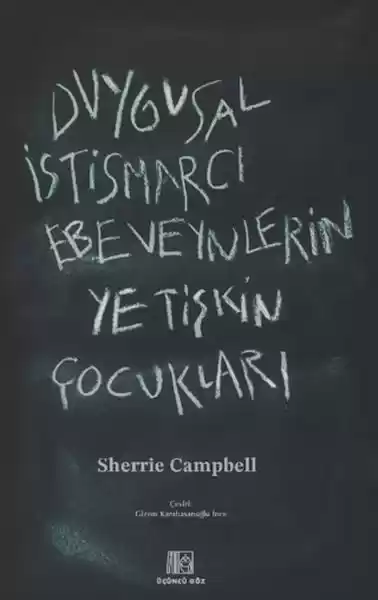 DUYGUSAL
İSTİSMARCI
EBEVEYNLERİN
YETİŞKİN
ÇOCUKLARI
Sherrie Campbell
Çeviri:
Gizem Karahasanoğlu İnce
ÜÇÜNCÜ GÖZ